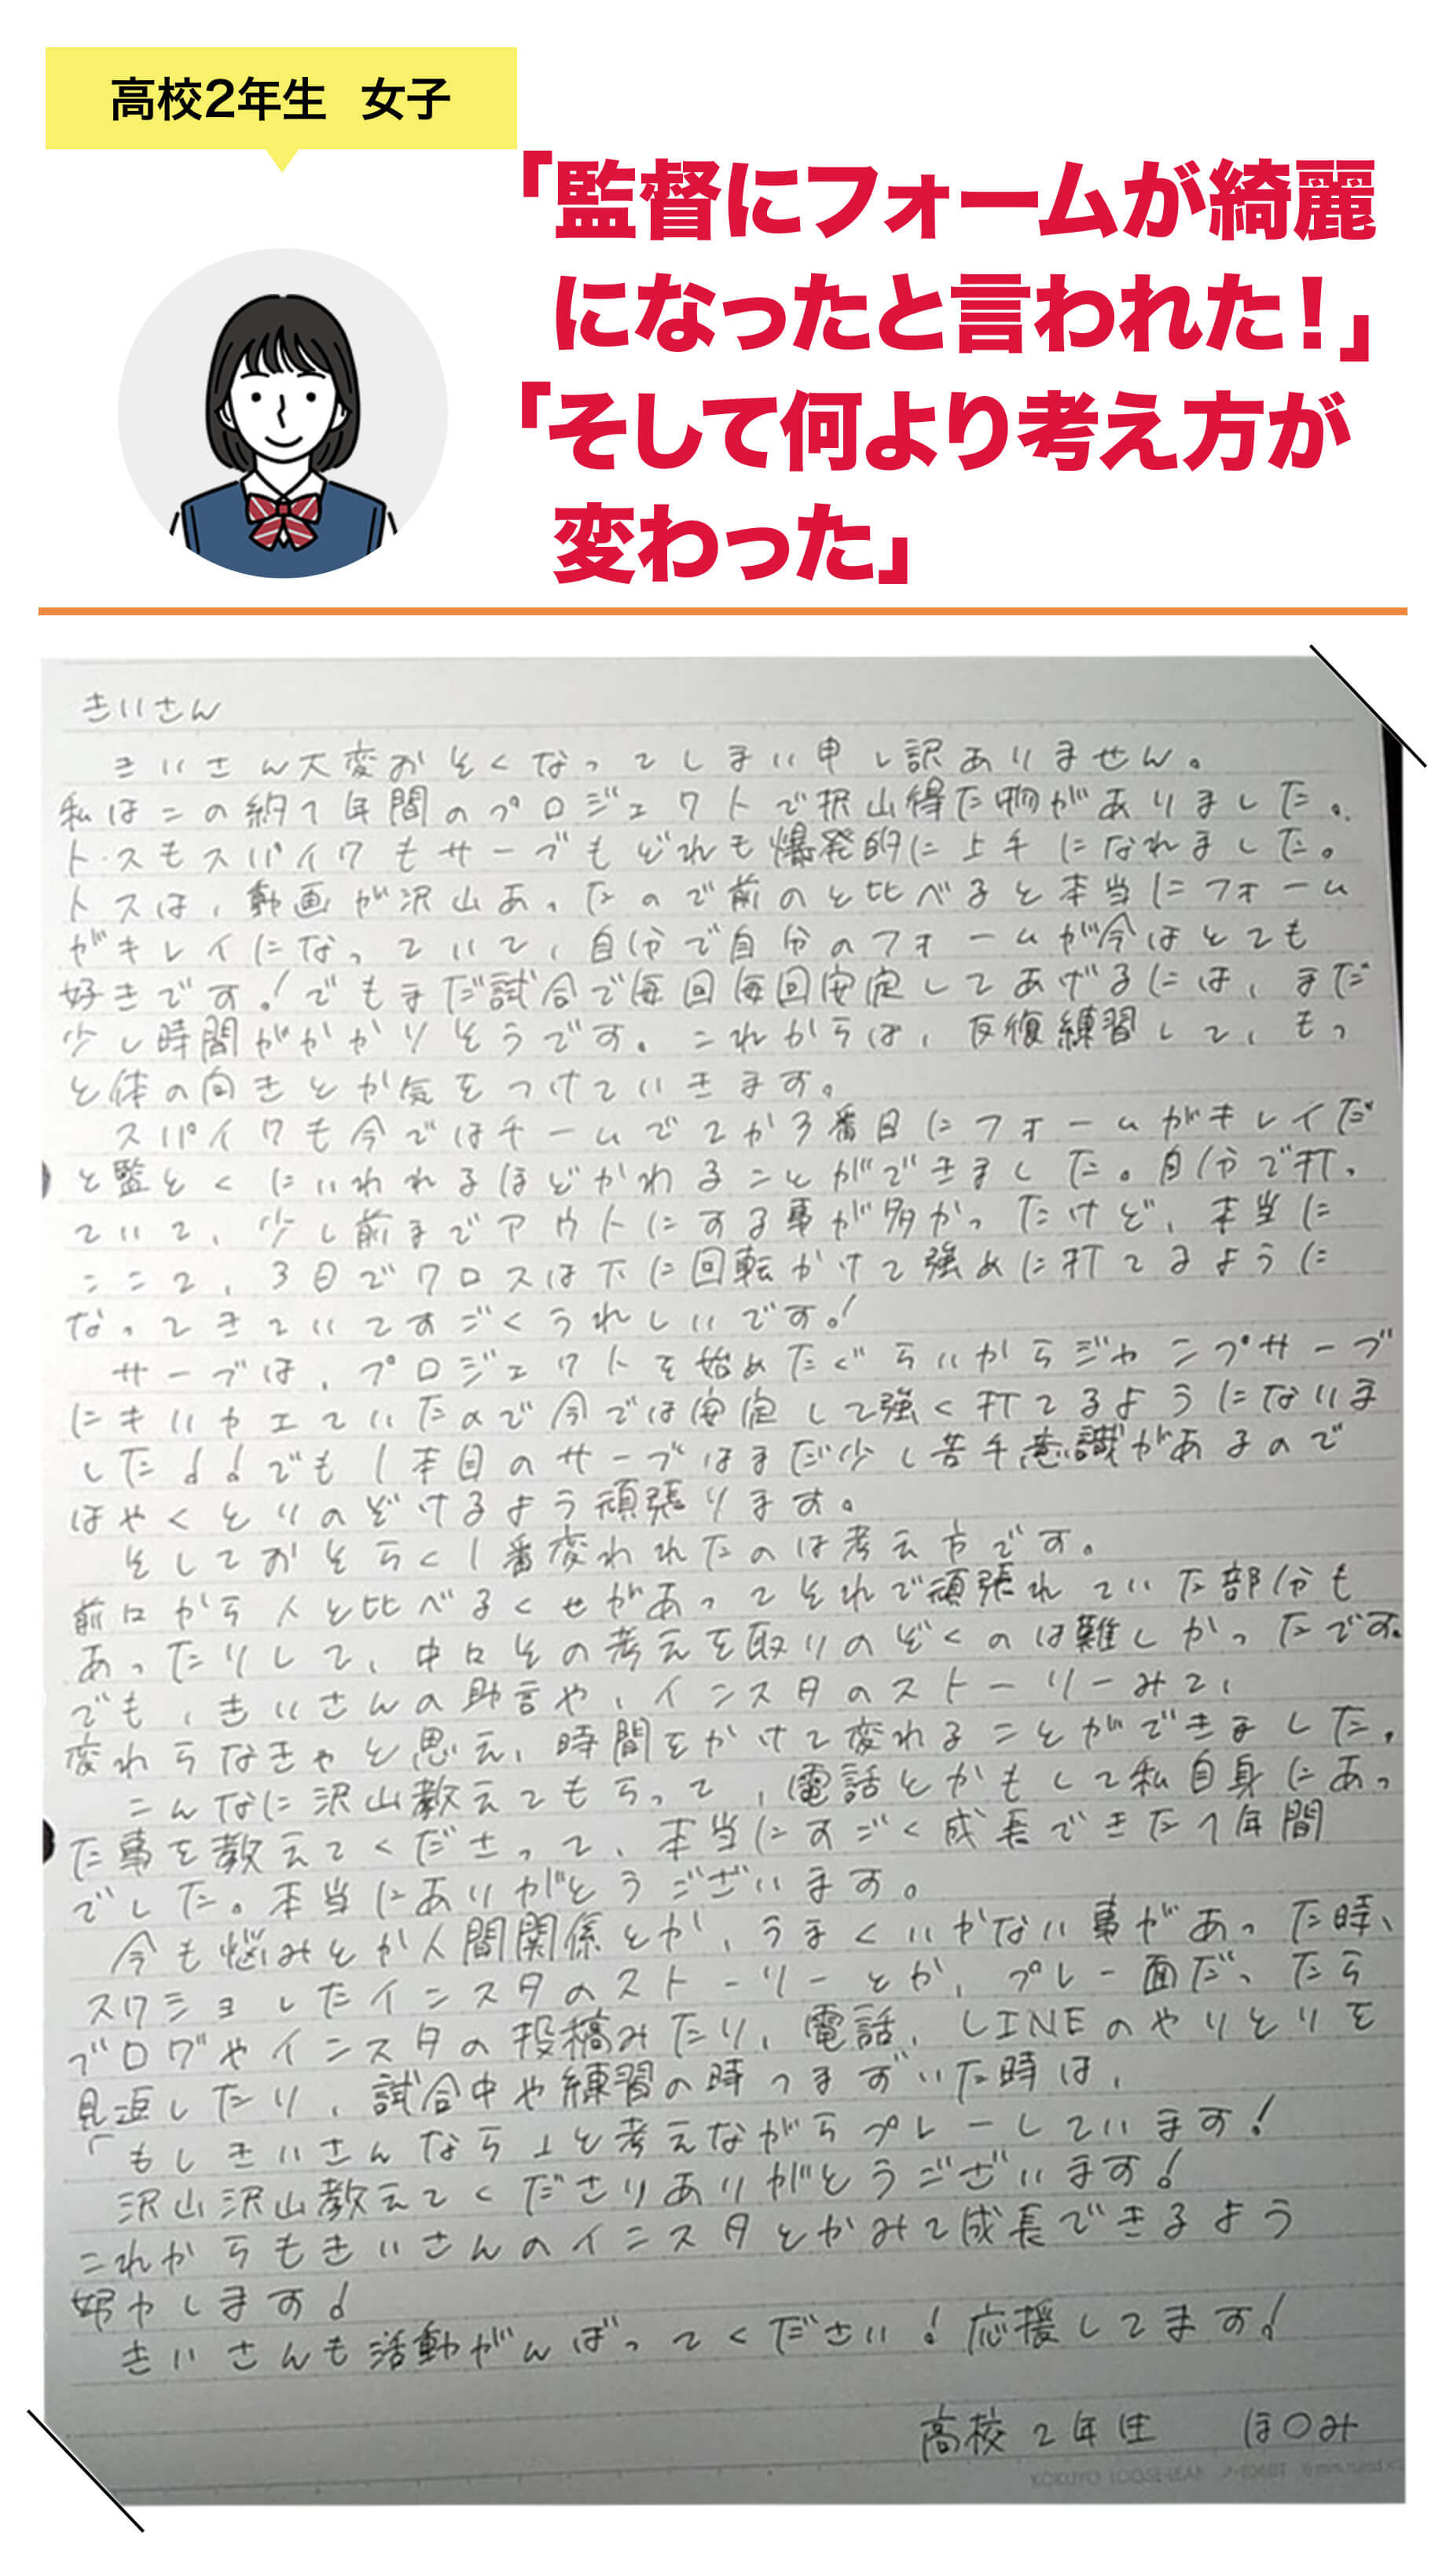 高校2年生 女子
「監督にフォームが綺麗
になったと言われた！」
「そして何より考え方が
変わった」
きいさん
きいさん大変おそくなってしまい申し訳ありません。
私はこの約1年間のプロジェクトで沢山得た物がありました。
トスもスパイクもサーブもどれも爆発的に上手になれました。
トスは、動画が沢山あったので前のと比べると本当にフォーム
がキレイになっていて、自分で自分のフォームが今はとても
好きです！でもまだ試合で毎回毎回安定してあげるには、まだ
少し時間がかかりそうです。これからは、反復練習して、もっ
と体の向きとか気をつけていきます。
スパイクも今ではチームで2か3番目にフォームがキレイだ
と監とくにいわれるほどかわることができました。自分で打っ
ていて、少し前までアウトにする事が多かったけど、本当に
ここ2、3日でクロスは下に回転かけて強めに打てるように
なってきていてすごくうれしいです！
サーブは、プロジェクトを始めたぐらいからジャンプサーブ
にきりかえていたので今では安定して強く打てるようになりま
した♩♩でも1本目のサーブはまだ少し苦手意識があるので
はやくとりのぞけるよう頑張ります。
そしておそらく1番変われたのは考え方です。
前々から人と比べるくせがあってそれで頑張れていた部分も
あったりして、中々その考えを取りのぞくのは難しかったです。
でも、きいさんの助言や、インスタのストーリーみて、
変わらなきゃと思え、時間をかけて変れることができました。
こんなに沢山教えてもらって、電話とかもして私自身にあっ
た事を教えてくださって、本当にすごく成長できた1年間
でした。本当にありがとうございます。
今も悩みとか人間関係とか、うまくいかない事があった時、
スクショしたインスタのストーリーとか、プレー面だったら
ブログやインスタの投稿みたり、電話、LINEのやりとりを
見返したり、試合中や練習の時つまずいた時は、
「もしきいさんなら」と考えながらプレーしています！
沢山沢山教えてくださりありがとうございます！
これからもきいさんのインスタとかみて成長できるよう
努力します♩
きいさんも活動がんばってください！応援してます！
高校2年生 ほ〇み